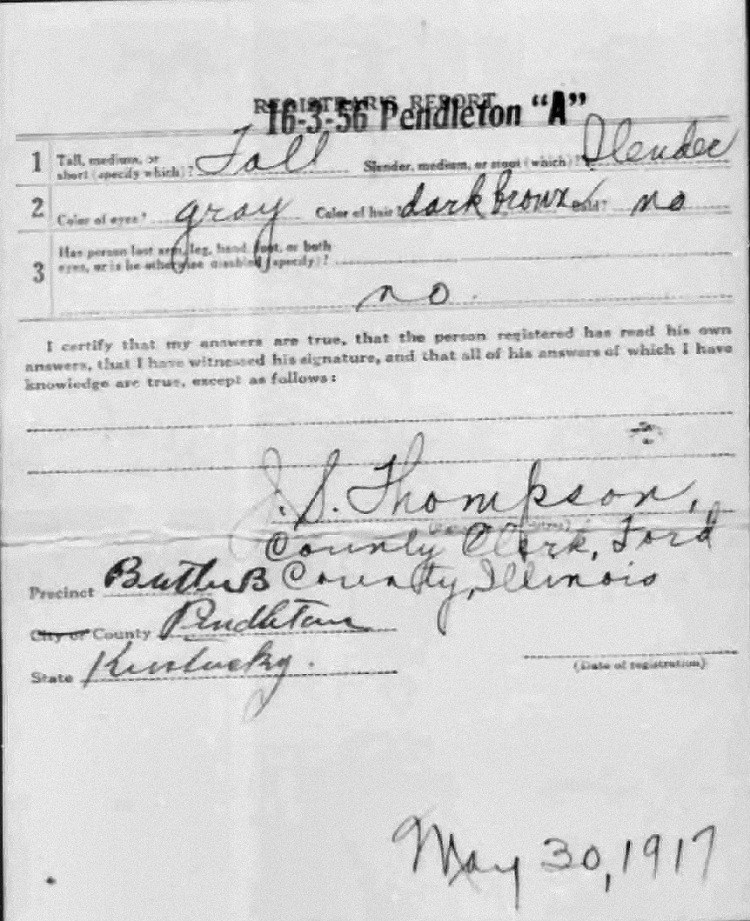 REGISTRAR'S REPORT
16-3-56 Pendleton "A"
1 Tall, medium, or short (specify which)? Tall Slender, medium, or stout (which)? Slender
2 Color of eyes? gray Color of hair? dark brown Bald? no
3 Has person lost arm, leg, hand, foot, or both
eyes, or is he otherwise disabled (specify)?
no.
I certify that my answers are true, that the person registered has read his own
answers, that I have witnessed his signature, and that all of his answers of which I have
knowledge are true, except as follows:
J. S. Thompson,
County Clerk, Ford
Precinct Butler B County, Illinois
City or County Pendleton
State Kentucky.
(Date of registration)
May 30, 1917